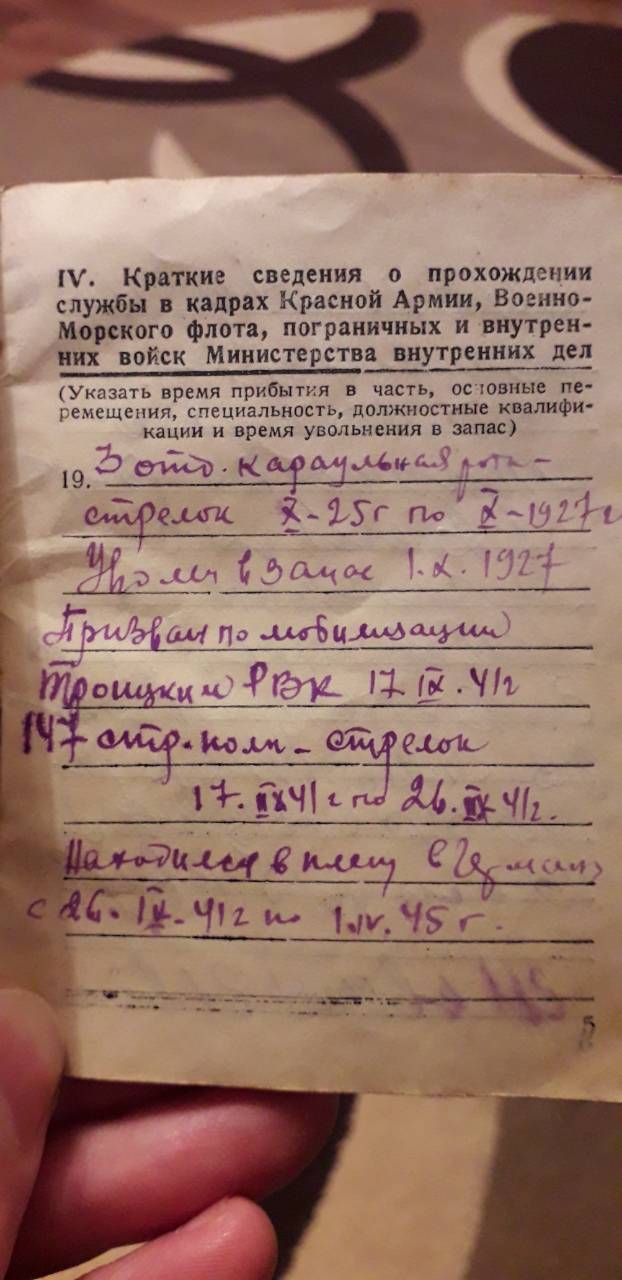 IV. Краткие сведения о прохождении
службы в кадрах Красной Армии, Военно-
Морского флота, пограничных и внутрен-
них войск Министерства внутренних дел
(Указать время прибытия в часть, основные пе-
ремещения, специальность, должностные квалифи-
кации и время увольнения в запас)
19. 3 отд. караульная рота -
стрелок X - 25 г по X - 1927 г
Уволен в запас 1. X. 1927
Призван по мобилизации
Троицким РВК 17 IX. 41 г
147 стр. полк - стрелок
17. IX 41 г по 26. IX 41 г.
Находился в плену в Германии
с 26. IX - 41 г по 1. IV. 45 г.
5